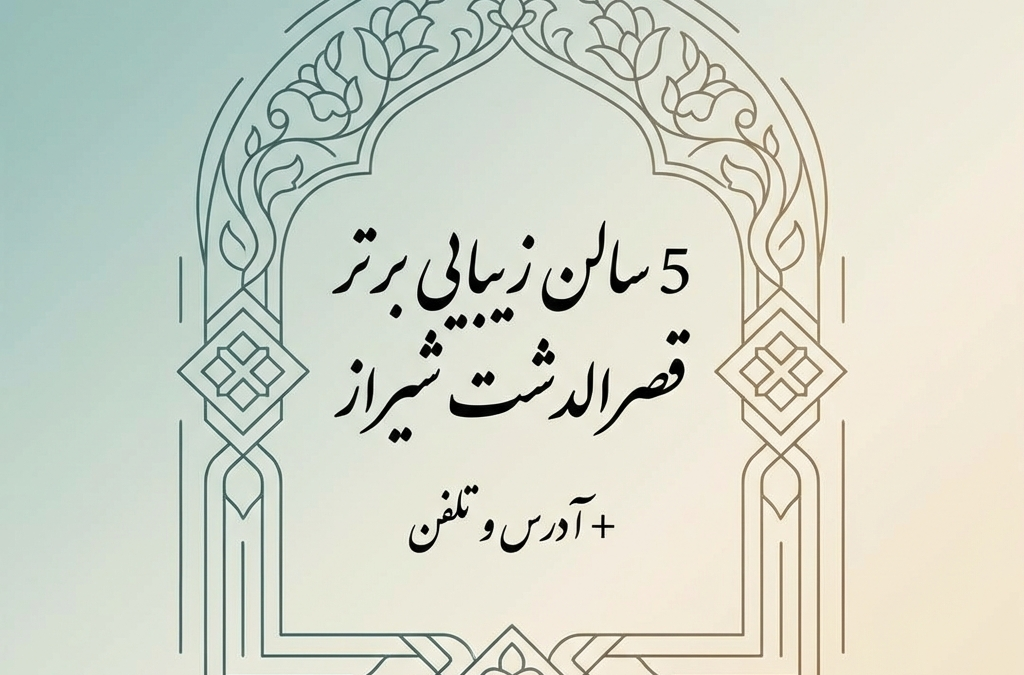 5 سالن زیبایی برتر
قصرالدشت شیراز
+ آدرس و تلفن